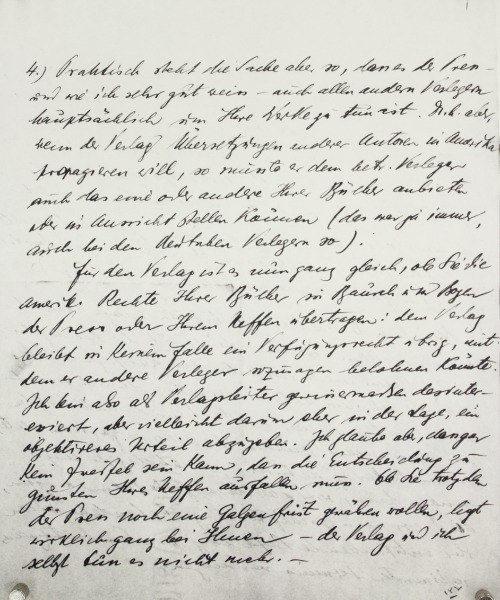 4.) Praktisch steht die Sache aber so, dass es der Press –
und wie ich sehr gut weiss – auch allen andern Verlegern
hauptsächlich um Ihre Werke zu tun ist. D.h. aber,
wenn der Verlag Übersetzungen anderer Autoren in Amerika
propagieren will, so müsste er dem betr. Verleger
auch das eine oder andere Ihrer Bücher anbieten
oder in Aussicht stellen können (das war ja immer,
auch bei den deutschen Verlegern so).
Für den Verlag ist es nun ganz gleich, ob Sie die
amerik. Rechte Ihrer Bücher in Bausch und Bogen
der Press oder Ihrem Neffen übertragen: dem Verlag
bleibt in keinem Falle ein Verfügungsrecht übrig, mit
dem er andere Verleger sozusagen belohnen könnte.
Ich bin also als Verlagsleiter gewissermaßen desinter-
essiert, aber vielleicht darum eher in der Lage, ein
objektiveres Urteil abzugeben. Ich glaube aber, dass gar
kein Zweifel sein kann, dass die Entscheidung zu
gunsten Ihres Neffen ausfallen muss. Ob Sie trotzdem
der Press noch eine Galgenfrist gewähren wollen, liegt
wirklich ganz bei Ihnen – der Verlag und ich
selbst tun es nicht mehr. –